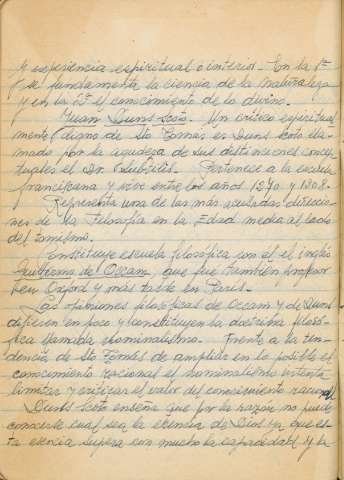 y experiencia espiritual o interior. En la 1ª
se fundamenta la ciencia de la naturaleza
y en la 2ª el conocimiento de lo divino.
Juan Duns Scoto. Un crítico espiritual
mente digno de Sto Tomas es Duns Scoto lla-
mado por la agudeza de sus distinciones concep-
tuales el Dr. Subtilis. Pertenece a la escuela
franciscana y vive entre los años 1270 y 1308.
Representa una de las mas acusadas direccio-
nes de la Filosofía en la Edad media al lado
del tomismo.
Constituye escuela filosófica con él el inglés
Guillermo de Occam, que fué también profesor
en Oxford y más tarde en Paris.
Las opiniones filosóficas de Occam y de Duns
difieren en poco y constituyen la doctrina filosó-
fica llamada nominalismo. Frente a la ten-
dencia de Sto Tomás de ampliar en lo posible el
conocimiento racional el nominalismo intenta
limitar y criticar el valor del conocimiento racional
Duns Scoto enseña que por la razón no puede
conocerse cual sea la esencia de Dios ya que es-
ta esencia supera con mucho la capacidad y la